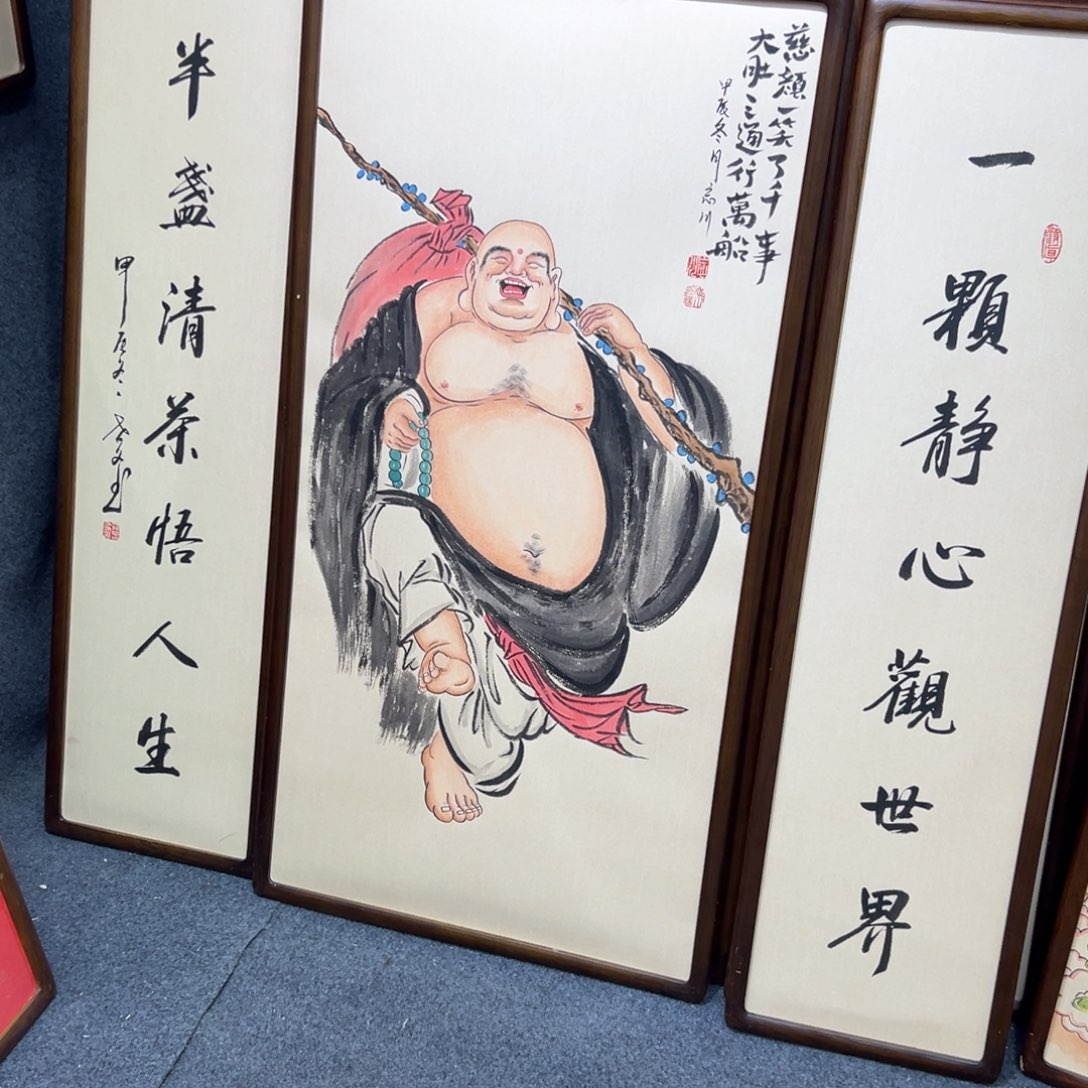 一顆静心觀世界
慈顔一笑了千事
大肚通行萬船
甲辰冬月志川
半盞清茶悟人生
甲辰冬